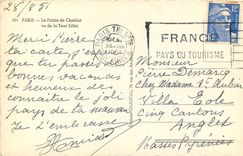 25/8/51
401 PARIS - Le Palais de Chaillot
vu de la Tour Eiffel
Merci Pierre
ta carte, j'espère
que tu passes de
bonnes vacances
et heureux de
connaître le joli
pays de ta maman
Je t'embrasse
PARIS
FRANCE
PAYS DU TOURISME
Monsieur
Pierre Demarcq
chez Madame Vve Aubin
Villa Eole
Cinq Cantons
Anglet
Basses Pyrénées